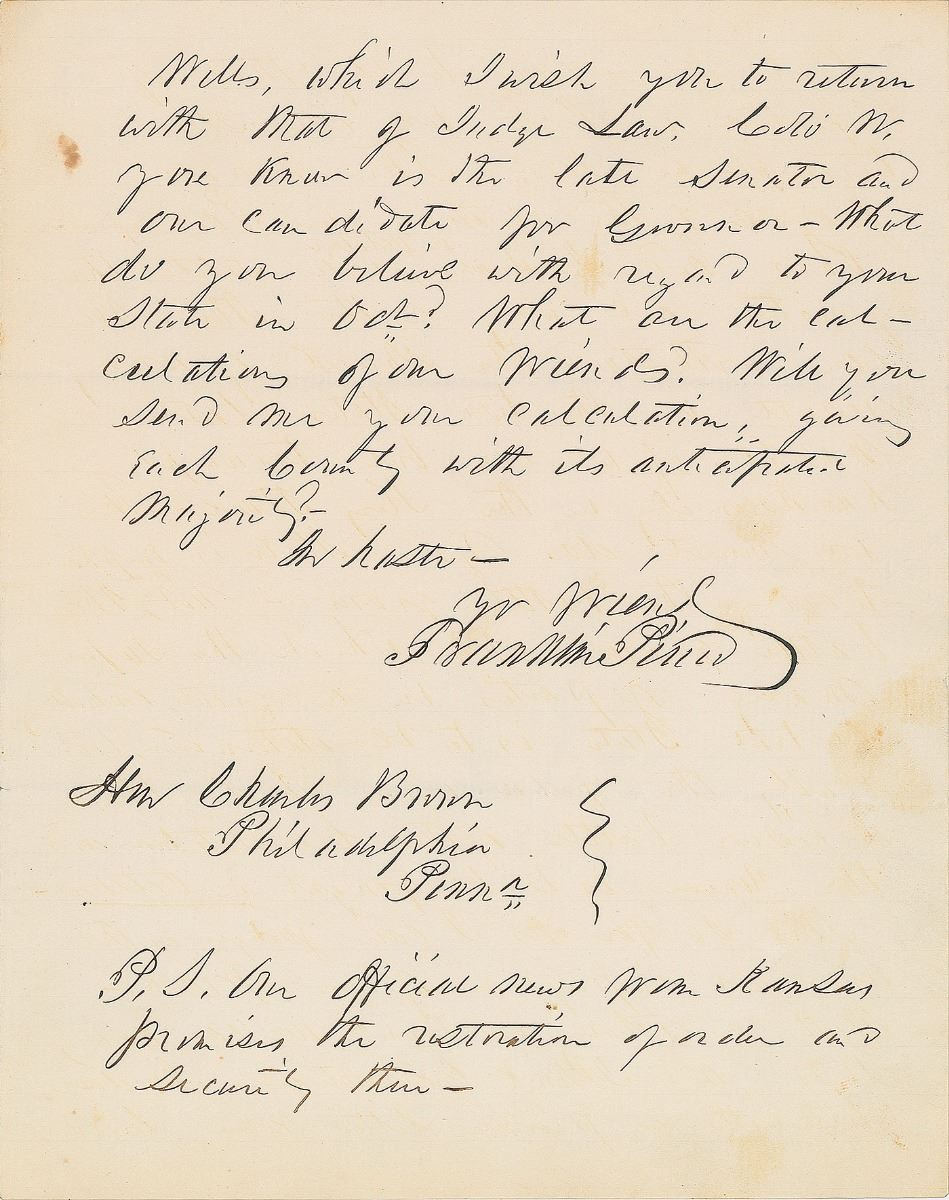 Wells, which I wish you to return
with that of Judge Law. Colo W.
you know is the late Senator and
our candidate for Governor - What
do you believe with regard to your
State in Oct? What are the cal-
culations of our friends? Will you
send me your calculation, giving
each County with its anticipated
Majority? -
In haste -
yr friend
Franklin Pierce
Hon Charles Brown
Philadelphia
Penna
P.S. Our official news from Kansas
promises the restoration of order and
security there -